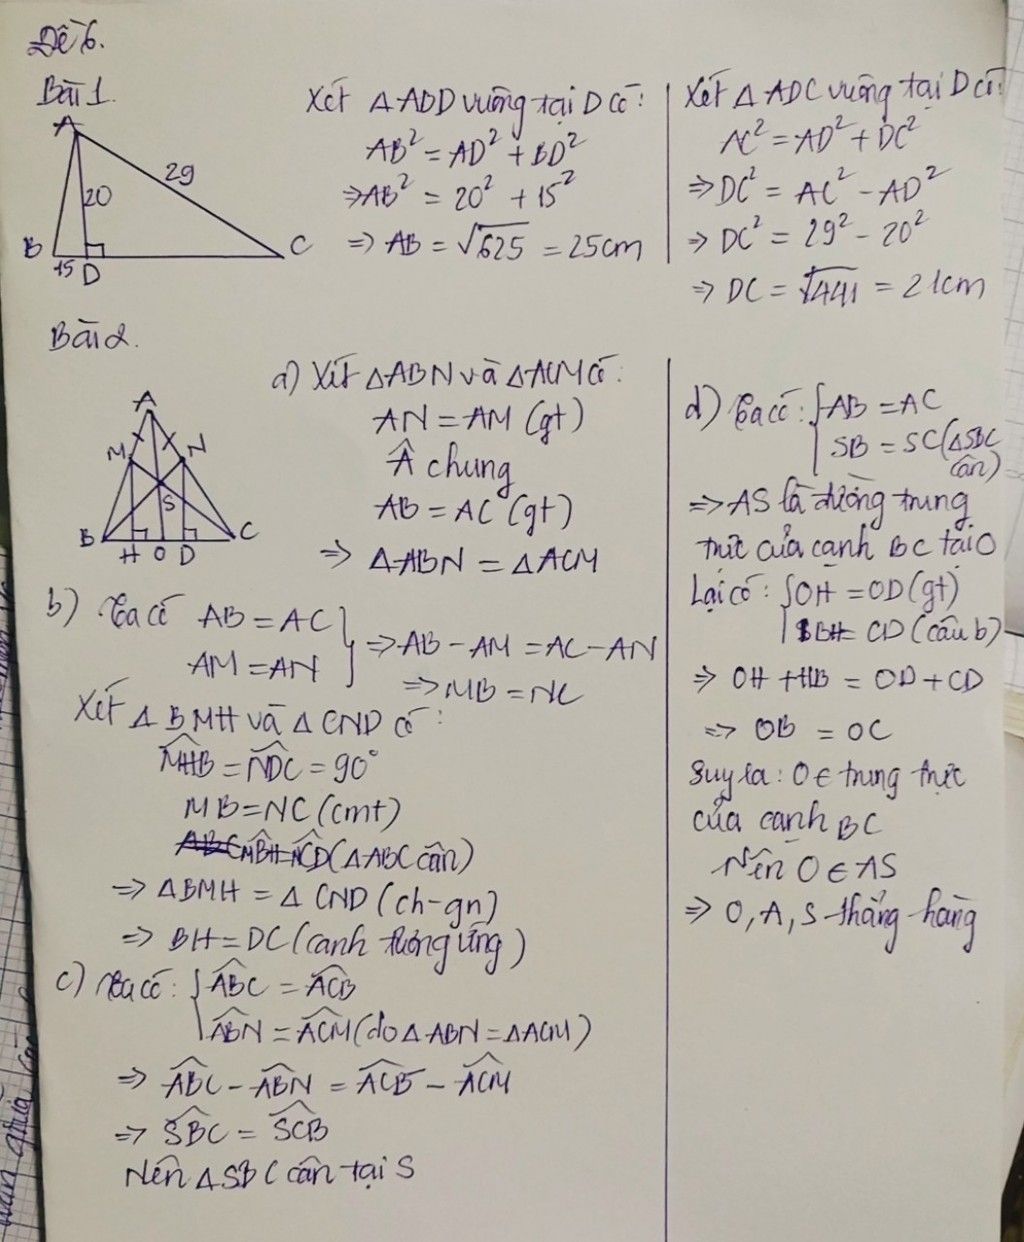 Đề 6.
Bài 1.
A
29
20
B
15
D
C
Xét ΔABD vuông tại D có:
AB² = AD² + BD²
⇒ AB² = 20² + 15²
⇒ AB = √625 = 25cm
Xét Δ ADC vuông tại D có:
AC² = AD² + DC²
⇒ DC² = AC² - AD²
⇒ DC² = 29² - 20²
⇒ DC = √441 = 21cm
Bài 2.
A
M N
S
B H O D C
a) Xét ΔABN và ΔACM có:
AN = AM (gt)
Â chung
AB = AC (gt)
⇒ ΔABN = ΔACM
b) Ta có AB = AC
AM = AN
} ⇒ AB - AM = AC - AN
⇒ MB = NC
Xét Δ BMH và Δ CND có:
\widehat{MHB} = \widehat{NDC} = 90°
MB = NC (cmt)
\widehat{MBH} = \widehat{NCD} (ΔABC cân)
⇒ ΔBMH = Δ CND (ch-gn)
⇒ BH = DC (cạnh tương ứng)
c) Ta có: { \widehat{ABC} = \widehat{ACB}
\widehat{ABN} = \widehat{ACM} (do ΔABN = ΔACM)
⇒ \widehat{ABC} - \widehat{ABN} = \widehat{ACB} - \widehat{ACM}
⇒ \widehat{SBC} = \widehat{SCB}
Nên ΔSBC cân tại S
d) Ta có: { AB = AC
SB = SC (ΔSBC
cân)
⇒ AS là đường trung
trực của cạnh BC tại O
Lại có: { OH = OD (gt)
BH = CD (câu b)
⇒ OH + HB = OD + CD
⇒ OB = OC
Suy ra: O ∈ trung trực
của cạnh BC
Nên O ∈ AS
⇒ O, A, S thẳng hàng